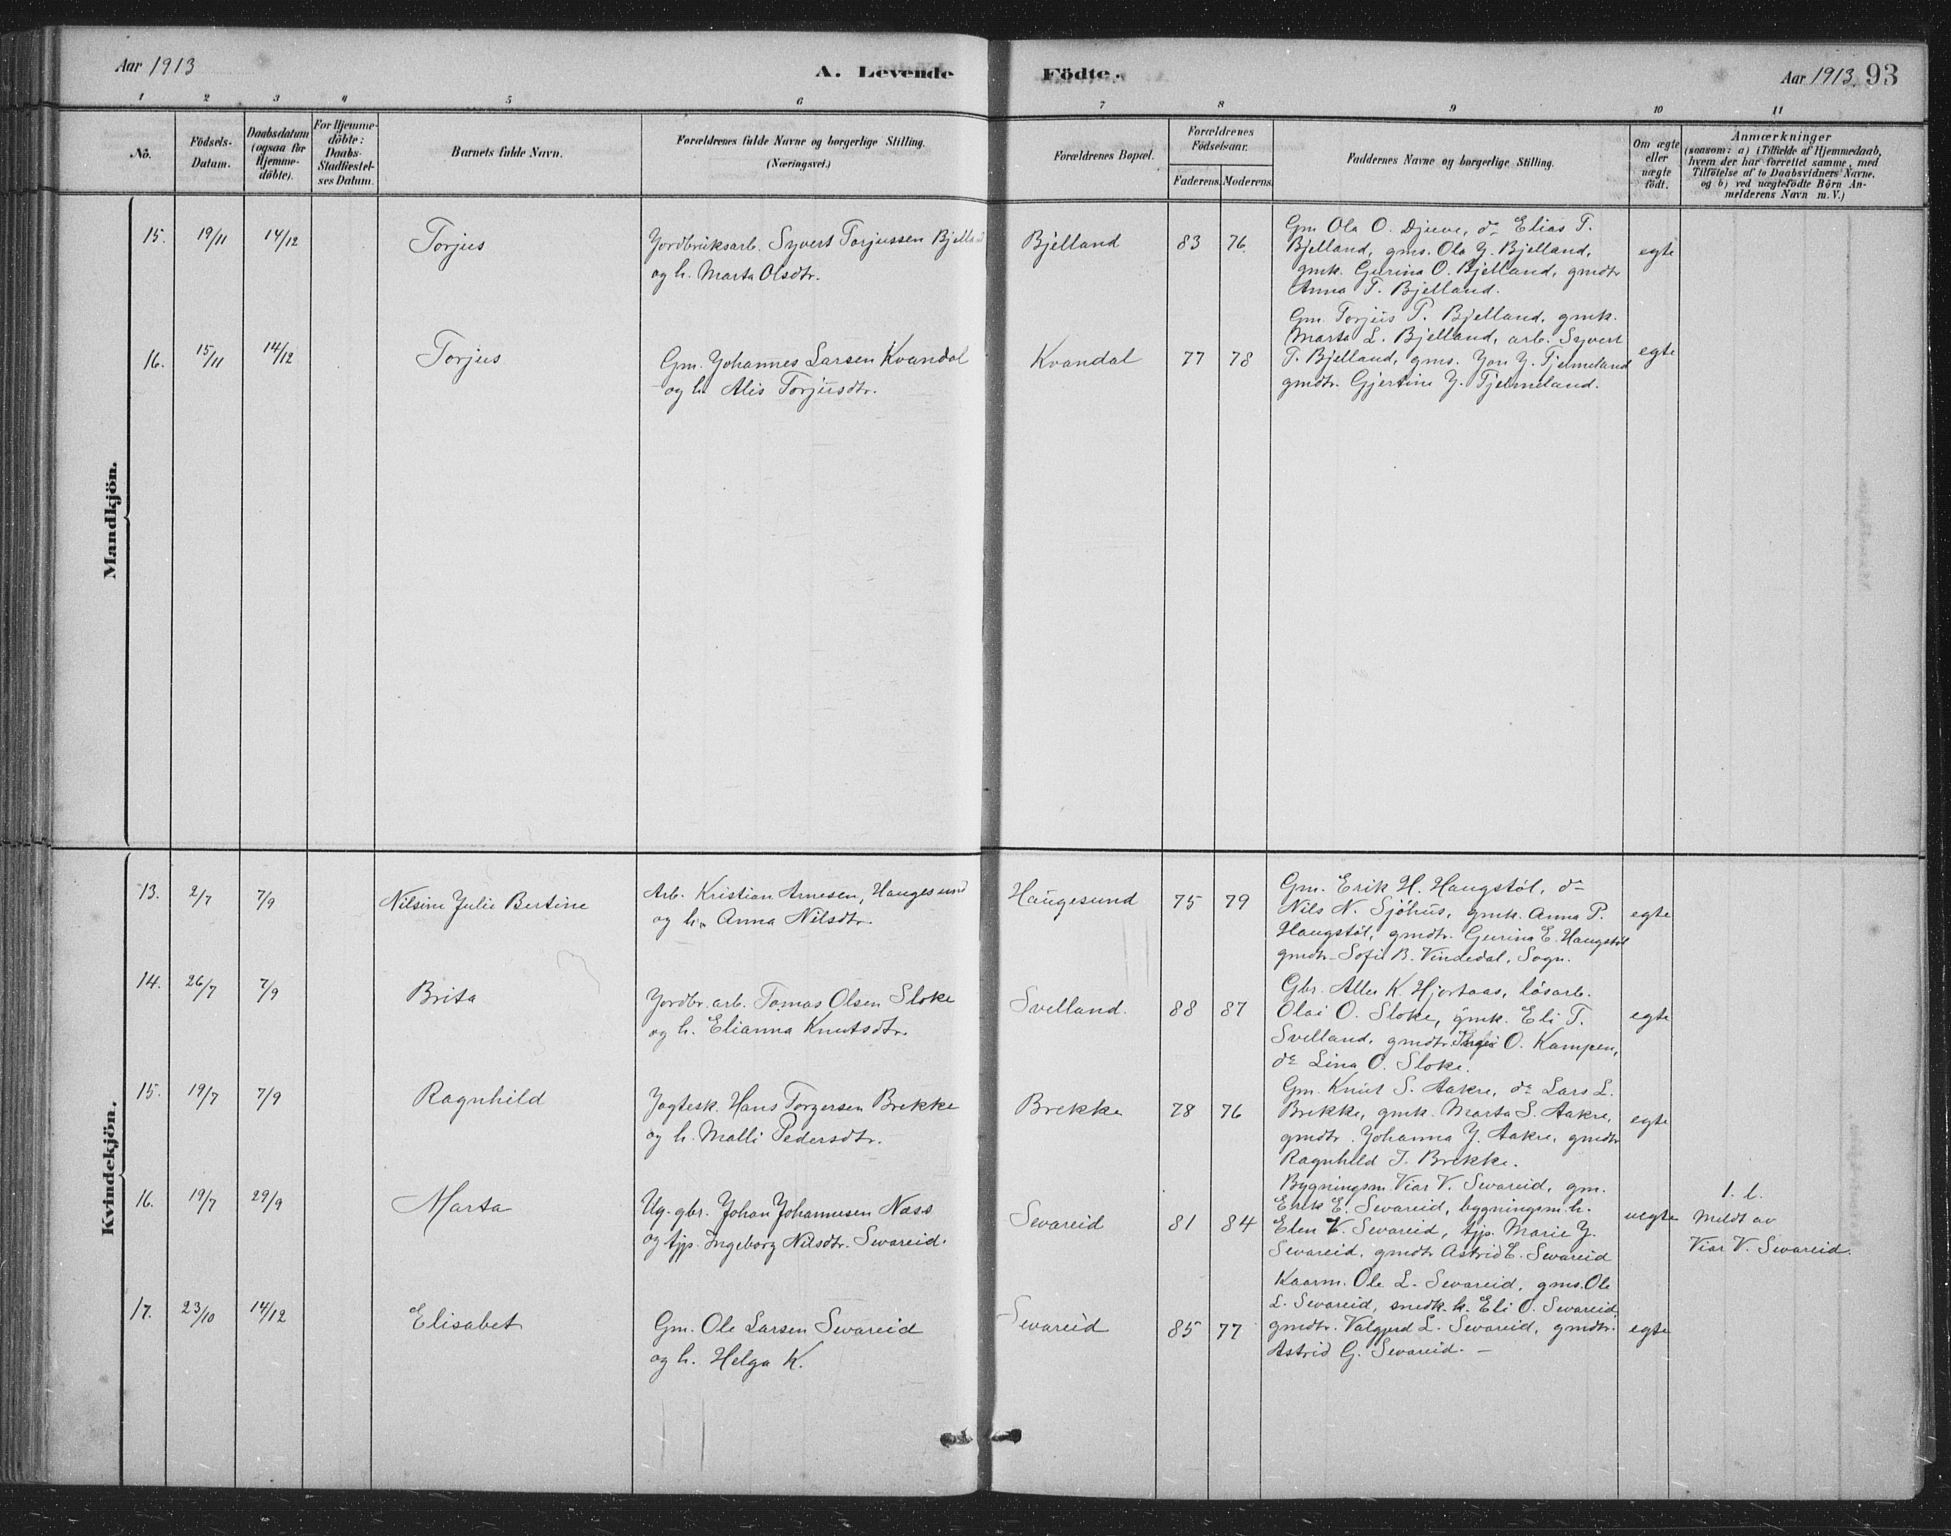 Aar 1913
A. Levende Födte.
Aar 1913. 93
1 2 3 4 5 6 7 8 9 10 11
No.
Födsels-Datum.
Daabsdatum (ogsaa for Hjemme-döbte).
For Hjemme-döbte: Daabs-Stadfæstel-ses Datum.
Barnets fulde Navn.
Forældrenes fulde Navne og borgerlige Stilling.
(Næringsvei.)
Forældrenes Bopæl.
Forældrenes Födselsaar.
Faderens. Moderens.
Faddernes Navne og borgerlige Stilling.
Om ægte eller uægte födt.
Anmærkninger
(saasom: a) i Tilfælde af Hjemmedaab,
hvem der har forrettet samme, med
Tilföielse af to Daabsvidners Navne,
og b) ved uægtefödte Börn An-
melderens Navn m. V.)
Mandkjön.
15. 19/11 14/12 Torjus
Jordbruksarb. Syvert Torjussen Bjelland
og h. Marta Olsdtr.
Bjelland 83 76.
Gm. Ola O. Djuve, do Elias T.
Bjelland, gms. Ola J. Bjelland,
gmk. Gurina O. Bjelland, gmdtr
Anna T. Bjelland.
egte
16. 15/11 14/12 Torjus
Gm. Johannes Larsen Kvandal
og h. Alis Torjusdtr.
Kvandal 77 78
Gm. Torjus T. Bjelland, gmk.
Marta L. Bjelland, arb. Syvert
T. Bjelland, gms. Jon J. Tjelmeland
gmdtr. Gjertine J. Tjelmeland.
egte
Kvindekjön.
13. 2/7 7/9 Nilsine Julie Bertine
Arb. Kristian Arnesen, Haugesund
og h. Anna Nilsdtr.
Haugesund 75 79
Gm. Erik H. Haugstöl, do
Nils N. Sjöhus, gmk. Anna P.
Haugstöl, gmdtr. Gurina E. Haugstöl
gmdtr. Sofie B. Vindedal, Sogn.
egte
14. 26/7 7/9 Brita
Jordbr. arb. Tomas Olsen Sloke
og h. Elianna Knutsdtr.
Svelland. 88 87
Gbr. Alle K. Hjortaas, lösarb.
Olai O. Sloke, gmk. Eli T.
Svelland, gmdtr. O. Kampen,
do Lina O. Sloke.
egte
15. 19/7 7/9 Ragnhild
Jagtesk. Hans Torgersen Brekke
og h. Malli Pedersdtr.
Brekke 78 76
Gm. Knut S. Aakre, do Lars L.
Brekke, gmk. Marta S. Aakre,
gmdtr. Johanna J. Aakre, gmdtr
Ragnhild I. Brekke.
egte
16. 19/7 29/9 Marta
Ug. gbr. Johan Johannesen Næss
og tjp. Ingeborg Nilsdtr. Sevareid.
Sevareid 81 84
Bygningsm. Viar V. Sevareid, gm.
Erik E. Sevareid, bygningsm. h.
Elen V. Sevareid, tjp. Marie J.
Sevareid, gmdtr Astrid E. Sevareid
uegte
1. l.
Meldt av
Viar V. Sevareid.
17. 23/10 14/12 Elisabet
Gm. Ole Larsen Sevareid
og h. Helga K.
Sevareid 85 77
Kaarm. Ole L. Sevareid, gms. Ole
L. Sevareid, snedk. h. Eli O. Sevareid
gmdtr. Valgjerd L. Sevareid, gmdtr.
Astrid G. Sevareid. —
egte